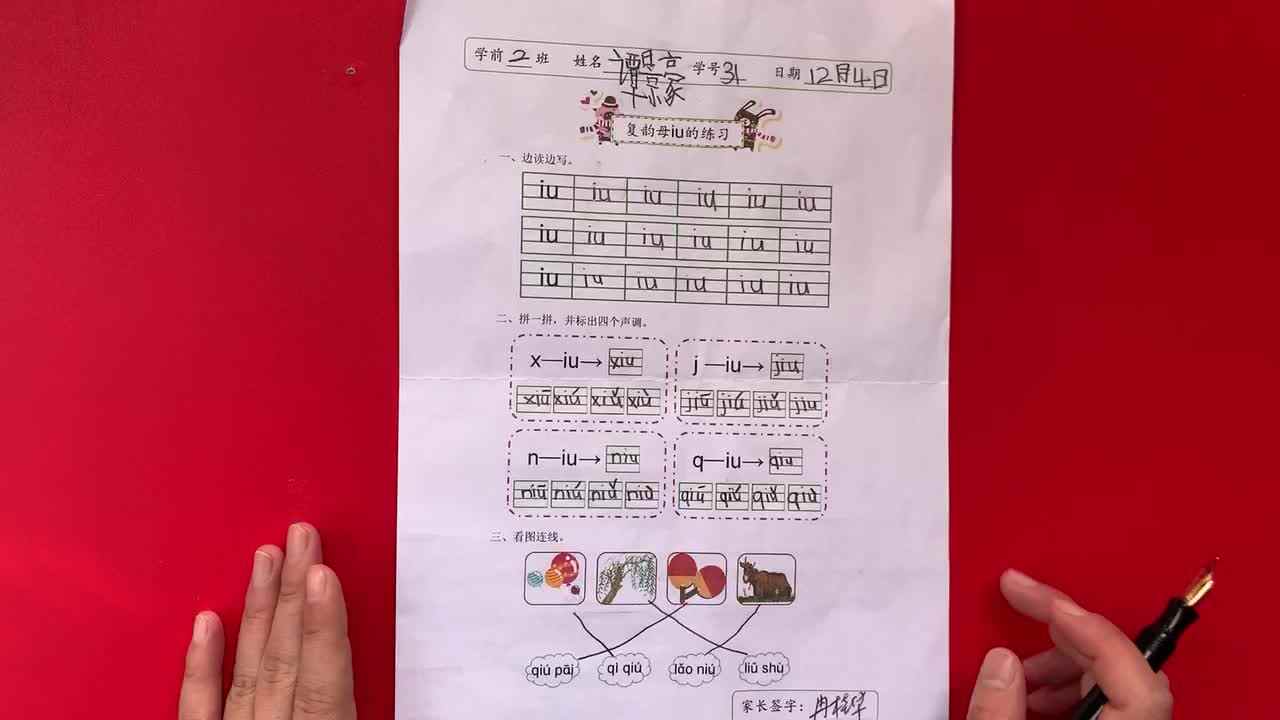 学前 2 班 姓名 学号 31 日期 12月4日
复韵母iu的练习
一、边读边写。
iu iu iu iu iu iu
iu iu iu iu iu iu
iu iu iu iu iu iu
二、拼一拼，并标出四个声调。
x—iu→ xiu j—iu→ jiu
xiū xiú xiǔ xiù jiū jiú jiǔ jiu
n—iu→ niu q—iu→ qiu
niū niú niǔ niù qiū qiú qiǔ qiù
三、看图连线。
qiú pāi qì qiú lǎo niú liǔ shù
家长签字：